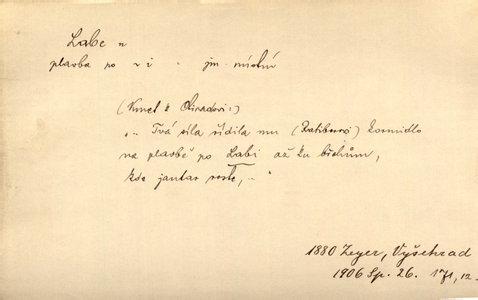 Labe n
plavba po v i - jm. místní
(Kmet k Ctiradovi:)
„.. Tvá síla řídila mu (Ratiborovi) kormidlo
na plavbě po Labi až ku břehům,
kde jantar roste, .. "
1880 Zeyer, Vyšehrad
1906 Sp. 26. 171, 12.